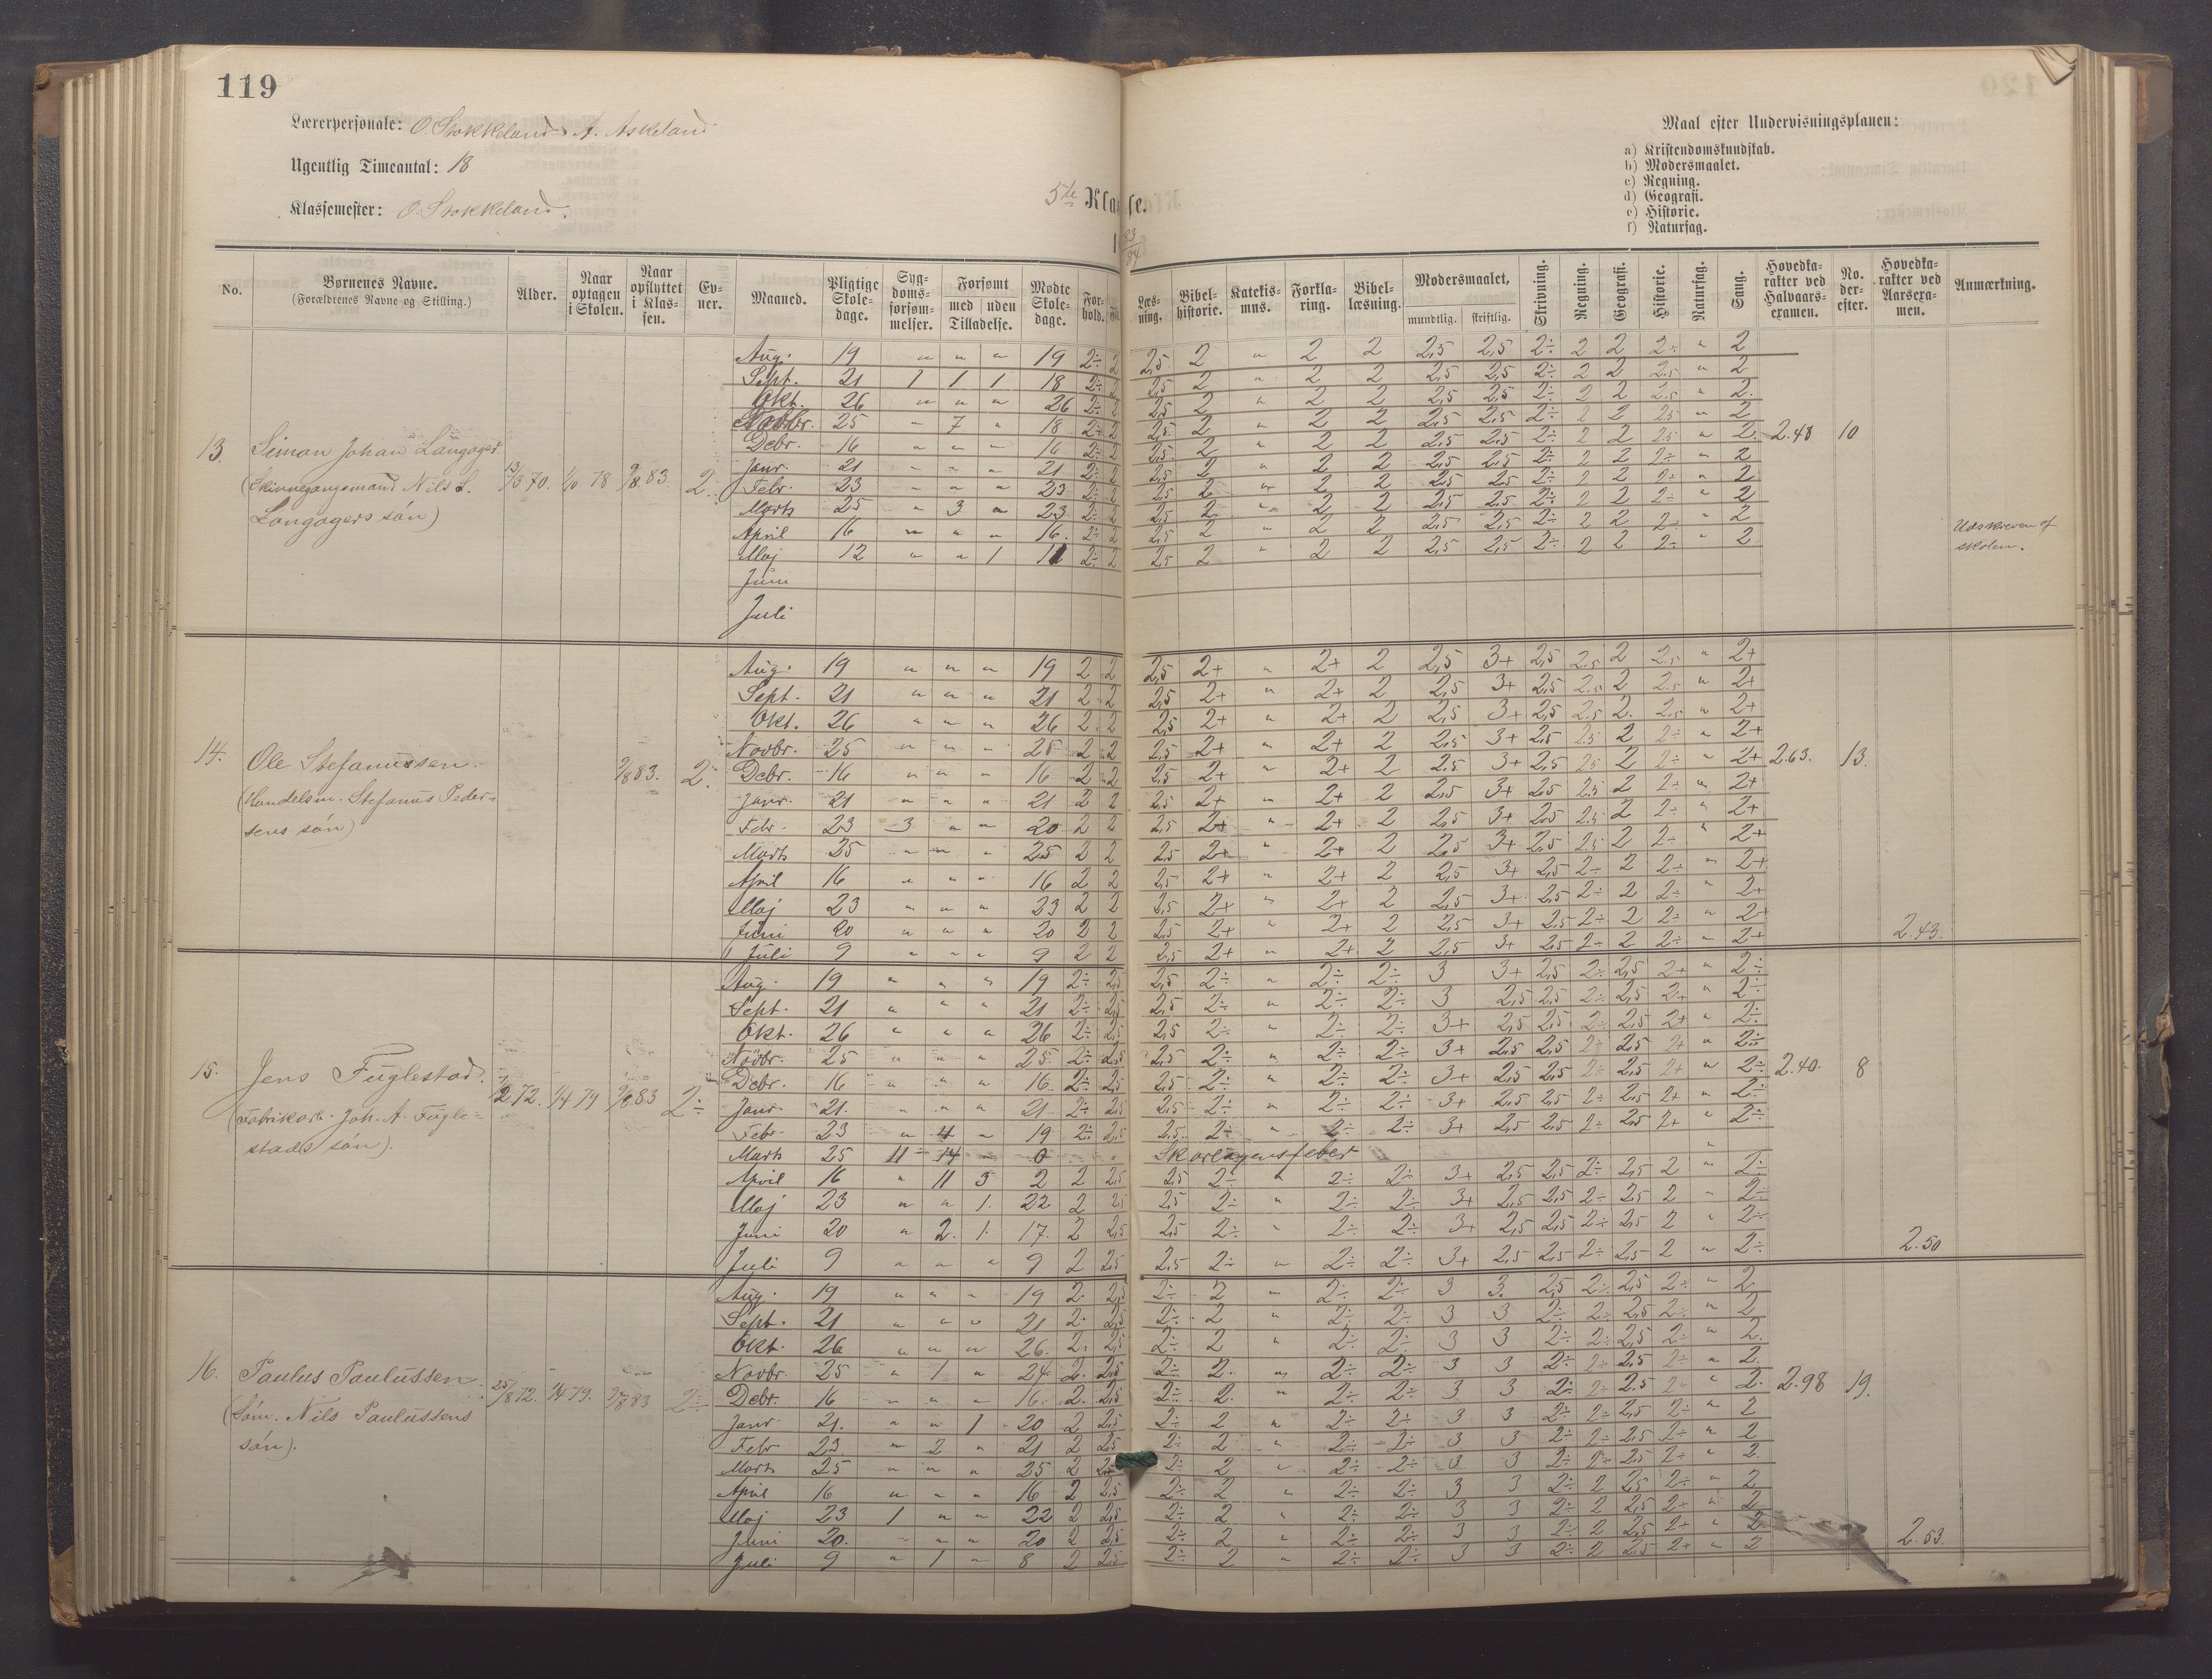 119
Lærerpersonale: O. Stokkeland A. Askeland
Ugentlig Timeantal: 18
Klassemester: O. Stokkeland.
5te Klasse.
83/84
Maal efter Undervisningsplanen:
a) Kristendomskundskab.
b) Modersmaalet.
c) Regning.
d) Geografi.
e) Historie.
f) Naturfag.
No. Børnenes Navne. (Forældrenes Navne og Stilling.) Alder. Naar optagen i Skolen. Naar opflyttet i Klassen. Evner. Maaned. Pligtige Skoledage. Sygdomsforsømmelser. Forsømt med uden Tilladelse. Mødte Skoledage. Forhold. Læsning. Bibelhistorie. Katekismus. Forklaring. Bibellæsning. Modersmaalet, mundtlig. skriftlig. Skrivning. Regning. Geografi. Historie. Naturfag. Sang. Hovedkarakter ved Halvaarsexamen. No. derefter. Hovedkarakter ved Aarsexamen. Anmærkning.
Aug. 19 " " " 19 2÷ 2 2,5 2 " 2 2 2,5 2,5 2÷ 2 2 2÷ " 2
Sept. 21 1 1 1 18 2÷ 2 2,5 2 " 2 2 2,5 2,5 2÷ 2 2 2.5 " 2
Okt. 26 " " " 26 2÷ 2 2,5 2 " 2 2 2,5 2,5 2÷ 2 2 2.5 " 2
Novbr. 25 " 7 " 18 2÷ 2 2,5 2 " 2 2 2,5 2,5 2÷ 2 2 2.5 " 2
13. Simon Johan Langager Debr. 16 " " " 16 2÷ 2 2,5 2 " 2 2 2,5 2,5 2÷ 2 2 2.5 " 2 2.48 10
(Skinnegangsmand Nils L. 13/3 70. 1/10 78 9/8 83. 2. Janr. 21 " " " 21 2÷ 2 2,5 2 " 2 2 2,5 2,5 2÷ 2 2 2÷ " 2
Langagers søn) Febr. 23 " " " 23 2÷ 2 2,5 2 " 2 2 2,5 2,5 2÷ 2 2 2÷ " 2
Marts 25 " 3 " 23 2÷ 2 2,5 2 " 2 2 2,5 2,5 2÷ 2 2 2÷ " 2
April 16 " " " 16. 2÷ 2 2,5 2 " 2 2 2,5 2,5 2÷ 2 2 2÷ " 2
Maj 12 " " 1 11 2÷ 2 2,5 2 " 2 2 2,5 2,5 2÷ 2 2 2÷ " 2
Udskreven af skolen.
Juni
Juli
Aug. 19 " " " 19 2 2 2,5 2+ " 2+ 2 2,5 3+ 2,5 2.5 2 2.5 " 2+
Sept. 21 " " " 21 2 2 2,5 2+ " 2+ 2 2,5 3+ 2,5 2.5 2 2.5 " 2+
Okt. 26 " " " 26 2 2 2,5 2+ " 2+ 2 2,5 3+ 2,5 2.5 2 2.5 " 2+
Novbr. 25 " " " 25 2 2 2,5 2+ " 2+ 2 2,5 3+ 2,5 2.5 2 2÷ " 2+
14. Ole Stefanussen. 9/8 83. 2÷ Debr. 16 " " " 16 2 2 2,5 2+ " 2+ 2 2,5 3+ 2,5 2.5 2 2÷ " 2+ 2.63. 13.
(Handelsm. Stefanus Pedersens søn) Janr. 21 " " " 21 2 2 2,5 2+ " 2+ 2 2,5 3+ 2,5 2.5 2 2÷ " 2+
Febr. 23 3 " " 20 2 2 2,5 2+ " 2+ 2 2,5 3+ 2,5 2.5 2 2÷ " 2+
Marts 25 " " " 25 2 2 2,5 2+ " 2+ 2 2,5 3+ 2,5 2.5 2 2÷ " 2+
April 16 " " " 16 2 2 2,5 2+ " 2+ 2 2,5 3+ 2,5 2÷ 2 2÷ " 2+
Maj 23 " " " 23 2 2 2,5 2+ " 2+ 2 2,5 3+ 2,5 2÷ 2 2÷ " 2+
Juni 20 " " " 20 2 2 2,5 2+ " 2+ 2 2,5 3+ 2,5 2÷ 2 2÷ " 2+ 2.43.
Juli 9 " " " 9 2 2 2,5 2+ " 2+ 2 2,5 3+ 2,5 2÷ 2 2÷ " 2+
Aug. 19 " " " 19 2÷ 2,5 2,5 2÷ " 2÷ 2÷ 3 3+ 2,5 2÷ 2,5 2+ " 2÷
Sept. 21 " " " 21 2÷ 2,5 2,5 2÷ " 2÷ 2÷ 3 2,5 2,5 2÷ 2,5 2+ " 2÷
Okt. 26 " " " 26 2÷ 2,5 2,5 2÷ " 2÷ 2÷ 3+ 2,5 2,5 2÷ 2,5 2+ " 2÷
Novbr. 25 " " " 25 2÷ 2,5 2,5 2÷ " 2÷ 2÷ 3+ 2,5 2,5 2÷ 2,5 2+ " 2÷
15. Jens Fuglestad. Debr. 16 " " " 16. 2÷ 2,5 2,5 2÷ " 2÷ 2÷ 3+ 2,5 2,5 2÷ 2,5 2+ " 2÷ 2.40. 8
(Fabrikarb. Joh. A. Fuglestads søn). 72. 1/4 79 9/8 83 2÷ Janr. 21. " " " 21 2÷ 2,5 2,5 2÷ " 2÷ 2÷ 3+ 2,5 2,5 2÷ 2,5 2+ " 2÷
Febr. 23 " 4 " 19 2÷ 2,5 2,5 2÷ " 2÷ 2÷ 3+ 2,5 2,5 2÷ 2,5 2+ " 2÷
Marts 25 11 14 " 0 Skarlagensfeber "
April 16 " 11 3 2 2 2,5 2,5 2÷ " 2÷ 2÷ 3+ 2,5 2,5 2÷ 2,5 2 " 2÷
Maj 23 " " 1. 22 2 2,5 2,5 2÷ " 2÷ 2÷ 3+ 2,5 2,5 2÷ 2,5 2 " 2÷
Juni 20 " 2. 1. 17. 2 2,5 2,5 2÷ " 2÷ 2÷ 3+ 2,5 2,5 2÷ 2,5 2 " 2÷ 2.50
Juli 9 " " " 9 2 2,5 2,5 2÷ " 2÷ 2÷ 3+ 2,5 2,5 2÷ 2,5 2 " 2÷
Aug. 19 " " " 19 2. 2,5 2÷ 2 " 2÷ 2÷ 3 3. 2,5 2÷ 2,5 2÷ " 2
Sept. 21 " " " 21 2. 2,5 2÷ 2 " 2÷ 2÷ 3 3 2÷ 2÷ 2,5 2÷ " 2
Okt. 26 " " " 26. 2. 2,5 2÷ 2 " 2÷ 2÷ 3 3 2÷ 2÷ 2,5 2÷ " 2.
16. Paulus Paulussen. Novbr. 25 " 1 " 24. 2. 2,5 2÷ 2. " 2÷ 2÷ 3 3 2÷ 2÷ 2,5 2÷ " 2.
25/8 72. 1/4 79. 9/8 83 2÷ Debr. 16 " " " 16. 2. 2,5 2÷ 2. " 2÷ 2÷ 3 3 2÷ 2÷ 2.5 2÷ " 2. 2.98 19.
(Søm. Nils Paulussens søn). Janr. 21. " " 1 20 2 2,5 2÷ 2 " 2÷ 2÷ 3 3 2÷ 2÷ 2,5 2÷ " 2
Febr. 23. " 2 " 21 2 2,5 2÷ 2 " 2÷ 2÷ 3 3 2÷ 2÷ 2,5 2÷ " 2
Marts 25 " " " 25 2 2,5 2÷ 2 " 2÷ 2÷ 3 3 2÷ 2÷ 2,5 2÷ " 2
April 16 " " " 16 2 2,5 2÷ 2 " 2÷ 2÷ 3 3 2÷ 2 2,5 2÷ " 2
Maj 23 1 " " 22 2 2,5 2÷ 2 " 2÷ 2÷ 3 3 2÷ 2 2,5 2+ " 2
Juni 20. " " " 20 2 2,5 2÷ 2 " 2÷ 2÷ 3 3 2÷ 2 2,5 2÷ " 2 2.53.
Juli 9 " 1 " 8 2 2,5 2÷ 2 " 2÷ 2÷ 3 3 2÷ 2 2,5 2+ " 2